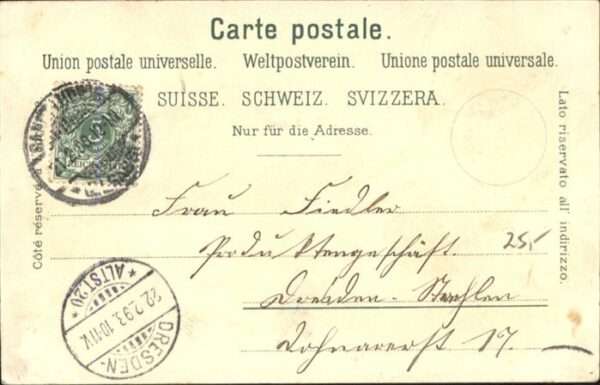 Carte postale.
Union postale universelle. Weltpostverein. Unione postale universale.
SUISSE. SCHWEIZ. SVIZZERA.
Nur für die Adresse.
Côté réservé à
Lato riservato all' indirizzo.
Frau Fiedler
Produktengeschäft.
25,-
Dresden-Strehlen
Dohnaerst 17.
DRESDEN-
* ALTST.20 *
22.2.93.10-11V.